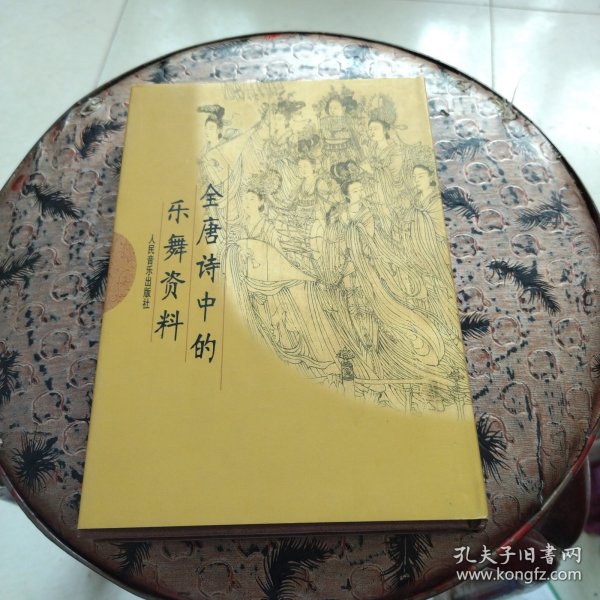 全唐诗中的
乐舞资料
人民音乐出版社
孔夫子旧书网
www.kongfz.com